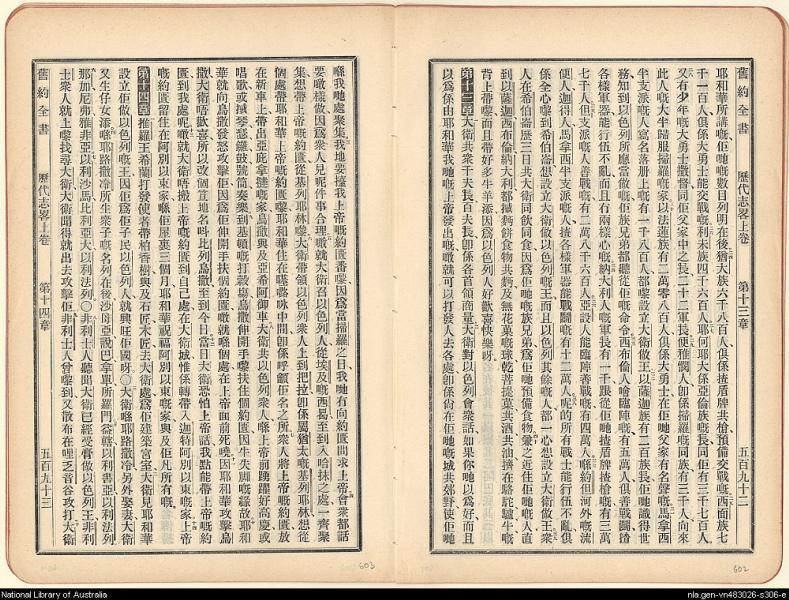 舊約全書 歷代志畧上卷 第十三章 五百九十二
耶和華所講嘅佢哋嘅數目列明在後猶大族六千八百人俱係揸盾牌共槍預備交戰嘅西面族七
千一百人俱係大勇士能交戰嘅利未族四千六百人耶何耶大係亞倫族嘅長同佢有三千七百人
又有少年嘅大勇士撒督同佢父家中之長二十二軍長便雅憫人卽係掃羅嘅同族有三千人向來
此人嘅大半歸服掃羅嘅家以法蓮族有二萬零八百人俱係大勇士在佢哋父家有名聲嘅馬拿西
半支派嘅人寫名落册上嘅有一千八百人都嚟設立大衛做王以薩迦族有二百族長佢哋識得世
務知到以色列所應當做嘅佢族兄弟都聽從佢嘅命令西布倫人會臨陣嘅有五萬人俱善戰鬪揸
各樣軍器能行伍不亂而且有兩樣心嘅納大利人嘅軍長有一千跟從佢哋揸盾牌揸槍嘅有三萬
七千人但支派嘅人善戰嘅有二萬八千六百人亞設人能臨陣善戰嘅有四萬人喺約但河外嘅流
便人迦得人馬拿西半支派嘅人揸各樣軍器能戰鬪嘅有十二萬人呢的所有戰士能行伍不亂俱
係全心嚟到希伯崙想設立大衛做以色列嘅王而且以色列其餘嘅人都一心想設立大衛做王衆
人在希伯崙歷三日共大衛同飲同食因爲佢哋嘅族兄弟爲佢哋預備食物彙之近住佢哋嘅人直
到以薩迦西布倫納大利都馱麪餅食物共麪及無花菓嘅球乾菩提菓共酒共油擠在駱駝驢牛嘅
背上帶嚟而且帶好多牛羊添因爲以色列人好歡喜快樂呀
第十三章 大衛共衆千夫長百夫長卽係各首領商量大衛對以色列會衆話如果你哋以爲好而且
以爲係由耶和華我哋上帝發出嘅就可以打發人去各處卽係尙在佢哋嘅城共郊野使佢哋
喺我哋處聚集我地要擡我上帝嘅約匱番嚟因爲當掃羅之日我哋冇向約匱間求上帝會衆都話
要噉樣做因爲衆人見呢件事合理噉就大衛召以色列人從埃及嘅西曷至到入哈抹之處一齊聚
集想帶上帝嘅約匱從基列耶林嚟大衛帶領以色列衆人上到把拉卽係屬猶太嘅基列耶林想從
個處帶耶和華上帝嘅約匱嚟耶和華住在㗎𡀔咟中間卽係呼籲佢名之所衆人將上帝嘅約匱放
在新車上帶出亞庇拿撻嘅家烏撒與及亞希阿御車大衛共以色列衆人喺上帝前踴躍好高慶或
唱歌或揻琴瑟鑼鼓號筒奏樂到基頓嘅打穀場烏撒伸開手嚟扶住個約匱因牛失脚嘅緣故耶和
華就向烏撒發怒攻擊佢因爲佢伸開手扶個約匱噉就喺個處在上帝面前死嘵因耶和華攻擊烏
撒大衛唔歡喜所以改個笪地名叫比列烏撒至到今日當日大衛恐怕上帝話我點能帶上帝嘅約
匱到我處呢噉就大衛唔搬上帝嘅約匱到自己處在大衛城惟係轉帶入迦特阿別以東嘅家上帝
嘅約匱留住在阿別以東家喺佢屋裏三個月耶和華祝福阿別以東嘅家與及佢凡所有嘅
第十四章 推羅王希蘭打發使者帶柏香樹與及石匠木匠去大衛處爲佢建築宮室大衛見耶和華
設立佢做以色列嘅王因佢爲佢子民以色列人就興旺佢國呀〇大衛喺耶路撒冷另外娶妻大衛
又生仔女添喺耶路撒冷所生衆子嘅名列在後沙母亞設巴拿單所羅門益轄以利書亞以法列
那加尼弗雅非亞以利沙馬比利亞大以利法列〇非利士人聽聞大衛已經受膏做以色列王非利
士衆人就上嚟找尋大衛大衛聞得就出去攻擊佢非利士人曾嚟到又散布在哩乏音谷攻打大衛
舊約全書 歷代志畧上卷 第十四章 五百九十三
603
602
National Library of Australia
nla.gen-vn483026-s306-e